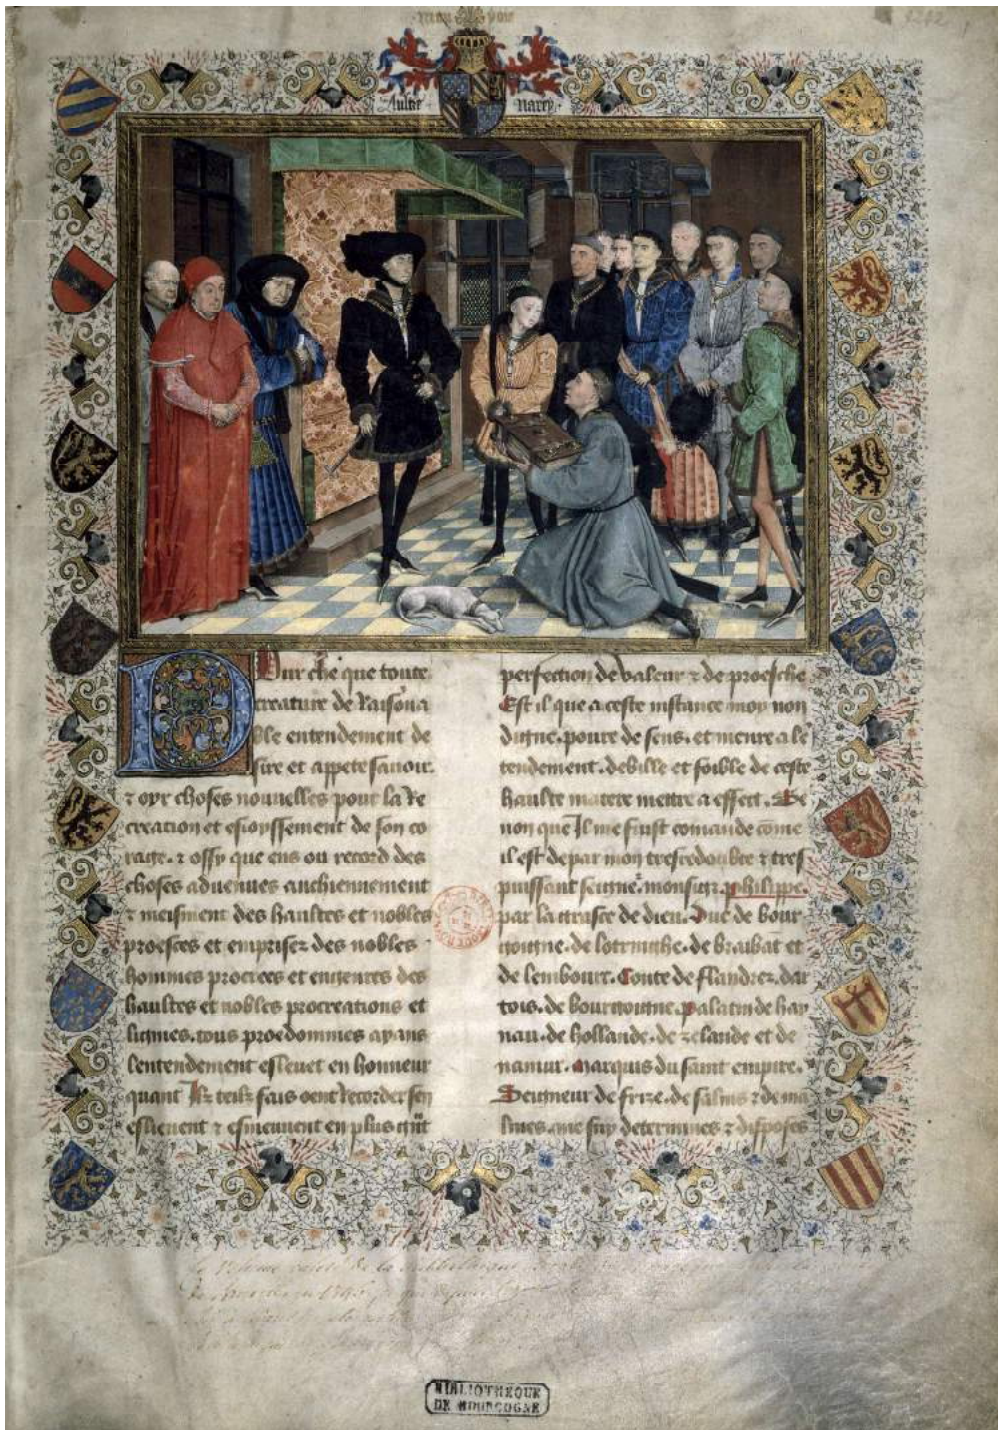 Aultre Narey
Pur che que toute
creature de Raisona
ble entendement de
sire et appete sauoir
⁊ oyr choses nouuelles pour la Re
creation et esioyssement de son co
rage. ⁊ ossy que ens ou record des
choses aduenues anchiennement
⁊ meisment des haultes et nobles
proesces et emprises des nobles
hommes procrees et engenres des
haultes et nobles procreations et
lignies. tous proedommes ayans
lentendement esleuet en honneur
quant Ilz telz fais oent Recorder sen
eslieuent ⁊ esmeuuent en plus grāt
perfection de valeur ⁊ de proesche
Est il que a ceste instance moy non
digne. poure de sens. et menre
tendement. debille et foible de ceste
haulte matere mettre a effect. Se
non que Il me fuist comande come
il est de par mon tresredoubte ⁊ tres
puissant seigne. monsigr. phelippe.
par la grasce de dieu. Duc de bour
gongne. de lotringhe. de braibāt et
de lembourc. Conte de flandrez. dar
tois. de bourgongne. palatin de hay
nau. de hollande. de zelande et de
namur. Marquis du saint empire.
Seigneur de frize. de salins ⁊ de ma
lines. me suy determines ⁊ disposes
BIBLIOTHEQUE
DE BOURGOGNE